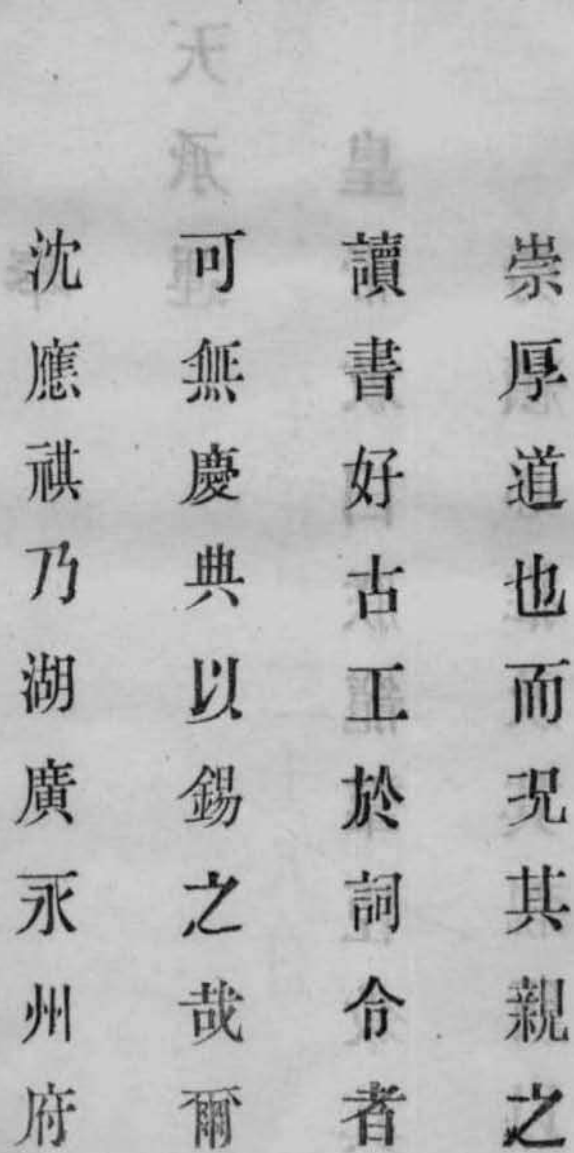 崇厚道也而況其親之
讀書好古工於詞令者
可無慶典以錫之哉爾
沈應祺乃湖廣永州府